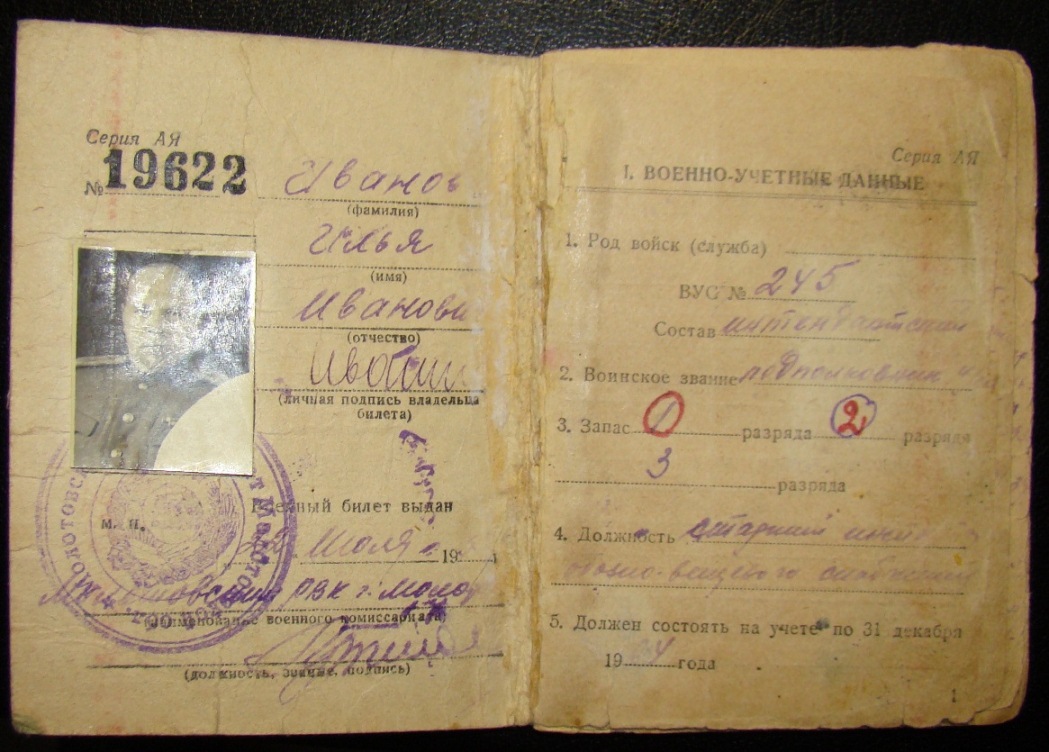 Серия АЯ
№ 19622
Иванов
(фамилия)
Илья
(имя)
Иванови
(отчество)
(личная подпись владельца
билета)
М. П.
Военный билет выдан
Июля 19
РВК г. Молот
(наименование военного комиссариата)
(должность, звание, подпись)
Серия АЯ
I. ВОЕННО-УЧЕТНЫЕ ДАННЫЕ
1. Род войск (служба)
ВУС № 245
Состав интендантский
2. Воинское звание подполковник
3. Запас 1 разряда 2 разряда
3 разряда
4. Должность старший
вещевого снабжения
5. Должен состоять на учете по 31 декабря
19 года
1